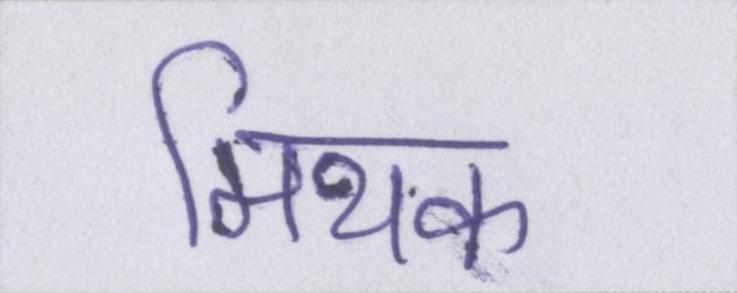 मिथक